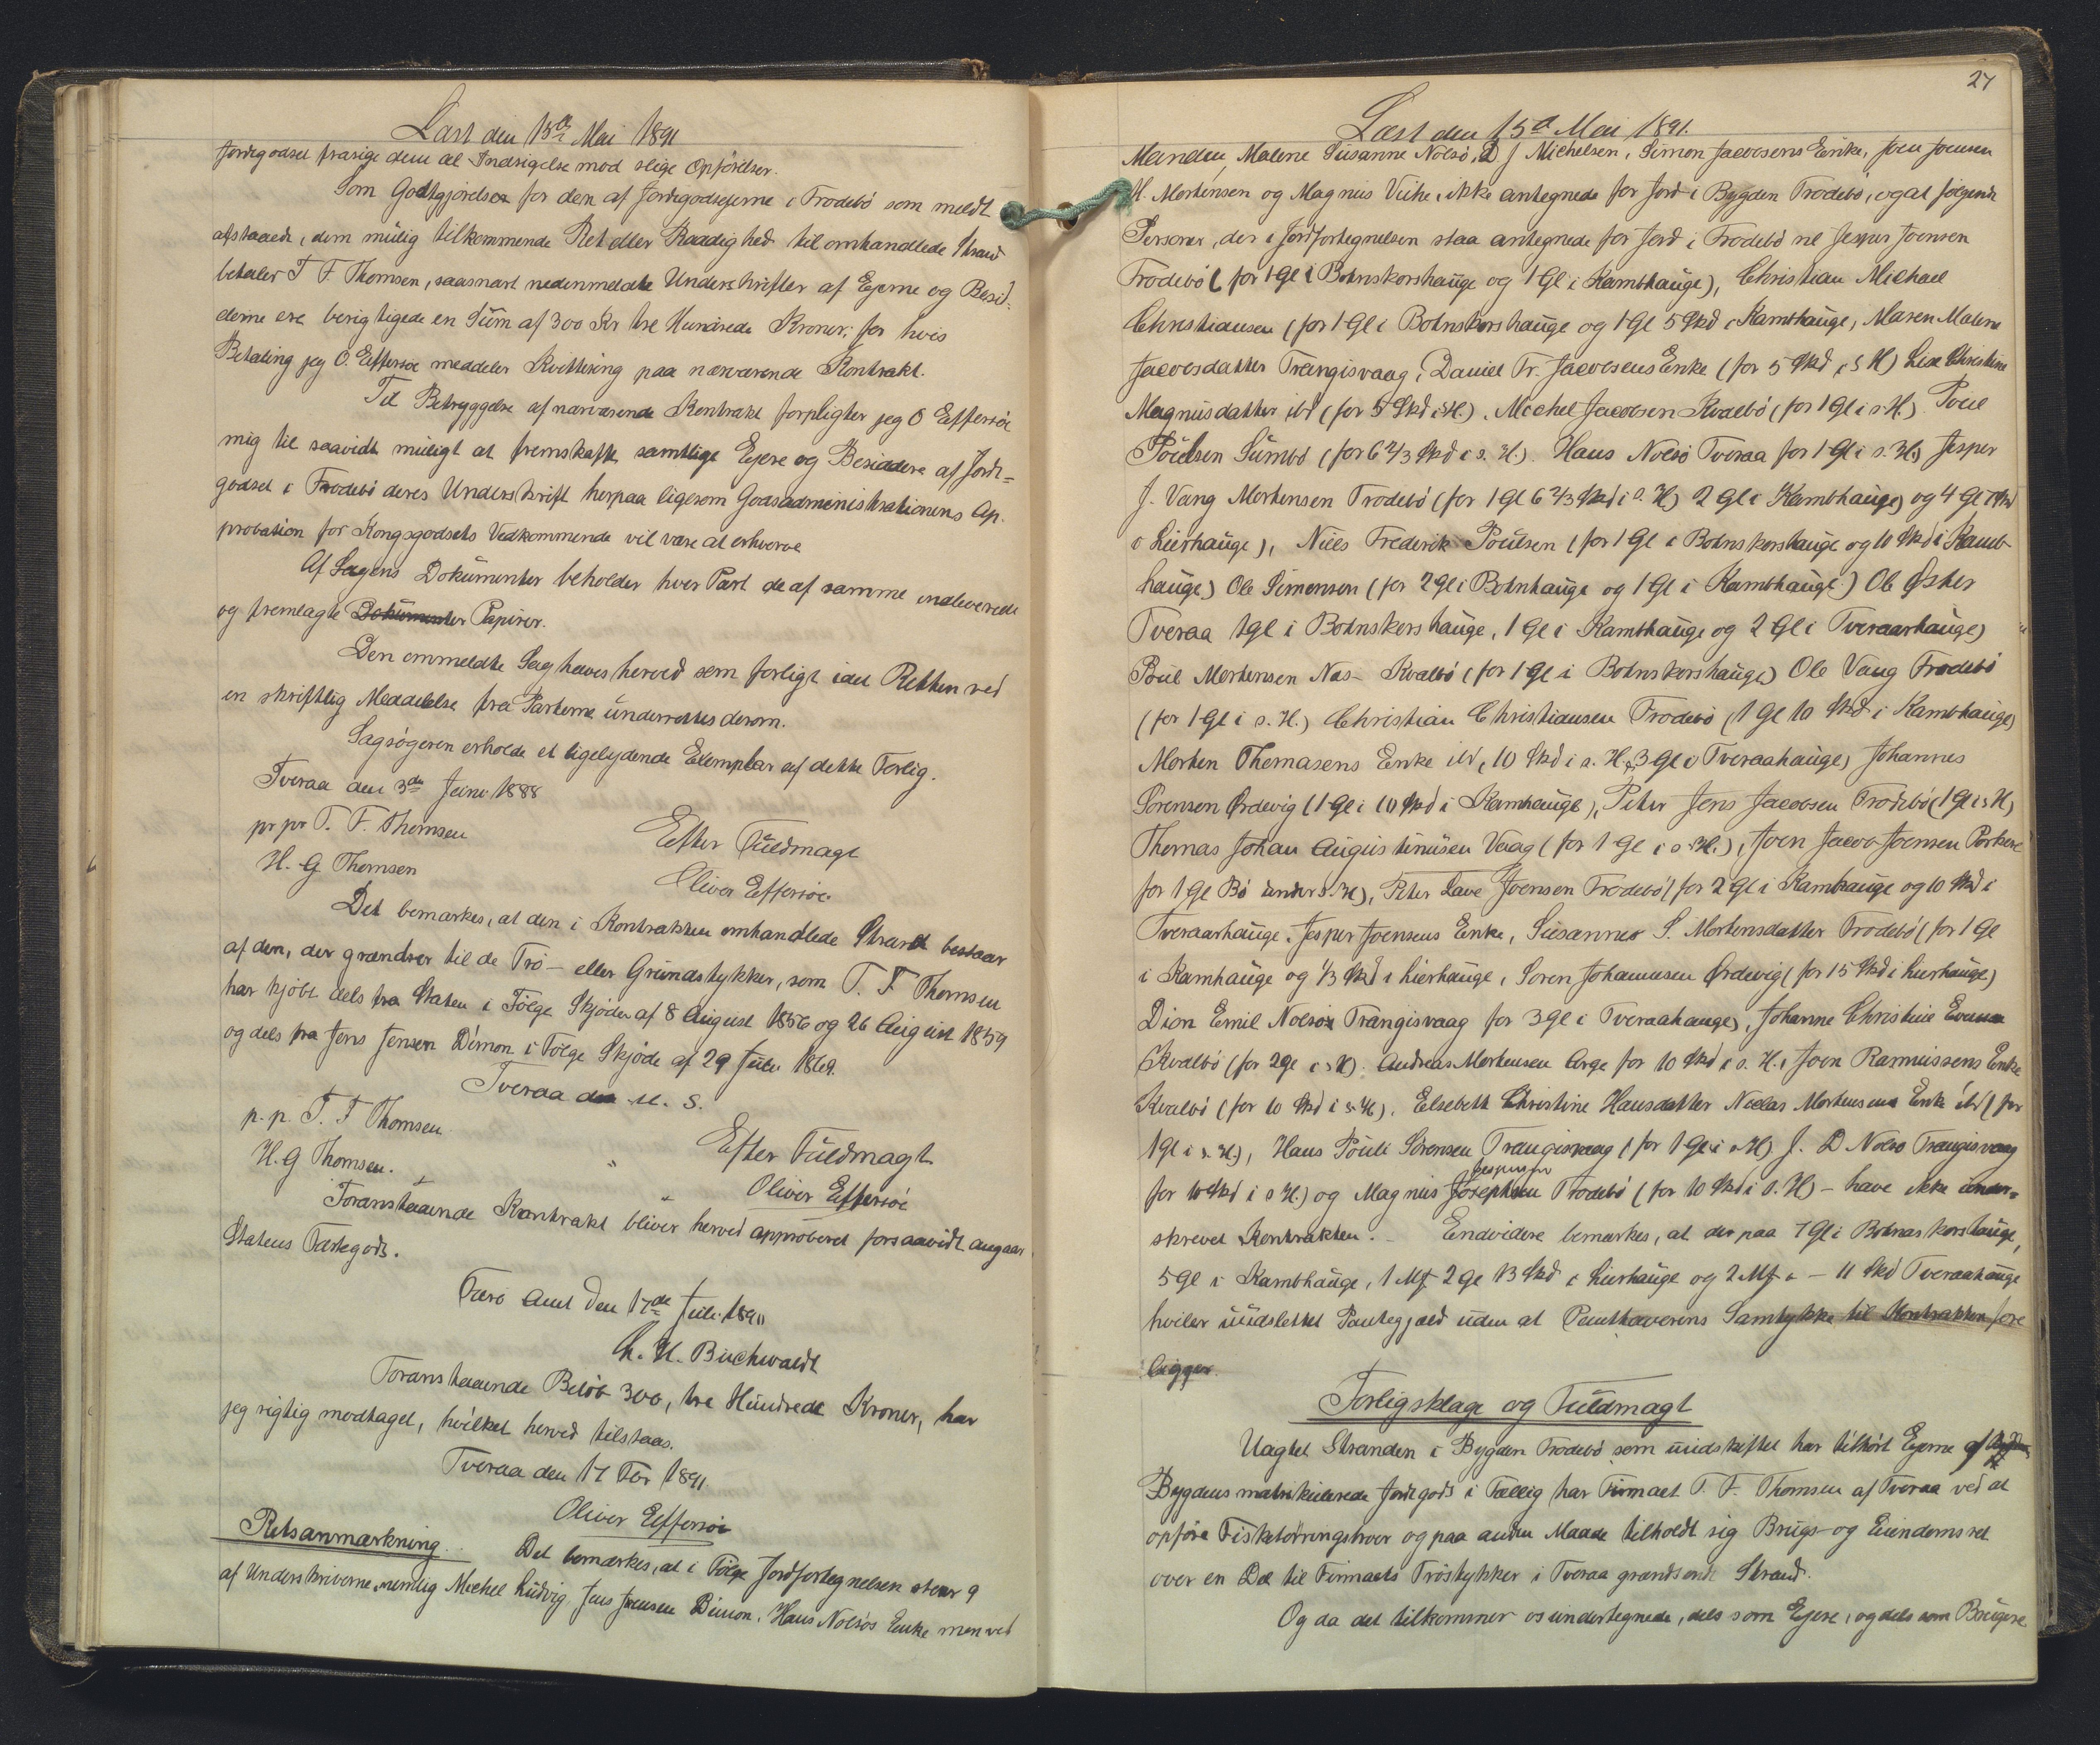 Læst den 15d Mai 1891
Jordegodset frasige dem al Indsigelse mod slige Opførelser.
Som Godtgjørelsen for den af Jordegodsejerne i Frodebø som meldt
afstaaede, dem mulig tilkommende Ret eller Raadighed til omhandlede Strand
betaler T F. Thomsen, saasnart nedenmeldte Underskrifter af Ejerne og Besid-
derne ere berigtigede en Sum af 300 Kr tre Hundrede Kroner; for hvis
Betaling jeg O. Effersøe meddeler Kvittering paa nærværende Kontrakt.
Til Betryggelse af nærværende Kontrakt forpligter jeg O Effersøe
mig til saavidt muligt at fremskaffe samtlige Ejere og Besiddere af Jorde-
godset i Frodebø deres Underskrift herpaa ligesom Godsadministrationens Ap-
probation for Kongsgodsets Vedkommende vil være at erhverve
Af Sagens Dokumenter beholder hver Part de af samme indleverede
og fremlagte Dokumenter Papirer.
Den ommeldte Sag hæves herved som forligt idet Retten ved
en skriftlig Meddelelse fra Parterne underrettes derom.
Sagsøgeren erholde et ligelydende Exemplar af dette Forlig.
Tveraa den 3de Juni 1888
pr pr T. F. Thomsen
Efter Fuldmagt
H. G Thomsen
Oliver Effersøe.
Det bemærkes, at den i Kontrakten omhandlede Strand bestaar
af den, der grændser til de Trø- eller Grundstykker, som T. F. Thomsen
har kjøbt dels fra Staten i Følge Skjøder af 8 August 1856 og 26 August 1859
og dels fra Jens Jensen Dimon i Følge Skjøde af 29 Juli 1869.
Tveraa d. u. s.
p. p. T. F Thomsen
Efter Fuldmagt
H. G Thomsen.
Oliver Effersøe
Foranstaaende Kontrakt bliver herved approberet forsaavidt angaar
Statens Fæstegods.
Færø Amt den 17de Juli 1890
C. H. Buchwaldt
Foranstaaende Beløb 300, tre Hundrede Kroner, har
jeg rigtig modtaget, hvilket herved tilstaas.
Tveraa den 17 Febr 1891
Oliver Effersøe
Retsanmærkning. Det bemærkes, at i Følge Jordfortegnelsen staar 9
af Underskriverne, nemlig Michel Ludvig, Jens Jensen Dimon, Hans Nolsøs Enke men ved
27
Læst den 15d Mai 1891.
Manden, Malene Susanne Nolsø, D J Michelsen, Simon Jacobsens Enke, Joen Joensen
M. Mortensen og Magnus Viihe, ikke antegnede for Jord i Bygden Frodebø, og at følgende
Personer, der i Jordfortegnelsen staa antegnede for Jord i Frodebø nl Jesper Joensen
Frodebø (for 1 Gl i Botnskorshauge og 1 Gl i Kambhauge), Christian Michael
Christiansen (for 1 Gl i Botnskorshauge og 1 Gl 5 Skd i Kambhauge, Maren Malene
Jacobsdatter Trangisvaag, Daniel Fr. Jacobsens Enke (for 5 Skd i s H) Lise Christine
Magnusdatter ibd (for 5 Skd i s H.), Michel Jacobsen Kvalbø (for 1 Gl i s. H.) Poul
Poulsen Sumbø (for 6 2/3 Skd i s. H.). Hans Nolsø Tveraa for 1 Gl i s. H.) Jesper
J. Vang Mortensen Frodebø (for 1 Gl 6 2/3 Skd i s. H) 2 Gl i Kambhauge) og 4 Gl 7 Skd
i Lierhauge), Niels Frederik Poulsen (for 1 Gl i Botnskorshauge og 10 Skd i Kamb-
hauge) Ole Simonsen (for 2 Gl i Botnhauge og 1 Gl i Kambhauge) Ole Øster
Tveraa 1 gl i Botnskorshauge, 1 Gl i Kambhauge og 2 Gl i Tveraarhauge)
Poul Mortensen Næs- Kvalbø (for 1 Gl i Botnskorshauge) Ole Vang Frodebø
(for 1 Gl i s. H.) Christian Christiansen Frodebø (1 Gl 10 Skd i Kambhauge)
Morten Thomasens Enke ibd, 10 Skd i s. H, 3 Gl i Tveraahauge) Johannes
Sørensen Ørdevig (1 Gl i 10 Skd i Kamhauge), Peter Jens Jacobsen Frodebø (1 Gl i s H)
Thomas Johan Augustinusen Vaag (for 1 Gl i s. H.), Joen Jacob Joensen Porkere
for 1 Gl Bø under s. H), Peter Dave Joensen Frodebø (for 2 Gl i Kambhauge og 10 Skd i
Tveraarhauge. Jesper Joensens Enke, Susanne S. Mortensdatter Frodebø (for 1 Gl
i Kamhauge og 1/3 Skd i Lierhauge, Søren Johannesen Ørdevig (for 15 Skd i Lierhauge)
Dion Emil Nolsøe Trangisvaag for 3 Gl i Tveraahauge), Johanne Christine
Kvalbø (for 2 gl i s H). Andreas Mortensen Arge for 10 Skd i s. H., Joen Rasmussens Enke
Kvalbø (for 10 Skd i s. H), Elsebeth Christine Hansdatter Niclas Mortensens Enke ibd (for
1 gl i s. H.), Hans Pauli Sørensen Trangisvaag (for 1 Gl i s H) J. D Nolsø Trangisvaag
for 10 Skd i s H.) og Magnus Jespersen Josephsen Frodebø (for 10 Skd i s. H) - have ikke under-
skrevet Kontrakten. - Endvidere bemærkes, at der paa 7 Gl i Botnaskorshauge,
5 Gl i Kambhauge, 1 Mf 2 Gl 13 Skd i Lierhauge og 2 Mf " - 11 Skd Tveraahauge
hviler uudslettet Pantegjæld uden at Panthaverens Samtykke til Kontrakten fore
ligger.
Forligsklage og Fuldmagt
Uagtet Stranden i Bygden Frodebø som uudskiftet har tilhørt Ejerne af
Bygdens matrikulerede Jordegods i Fællig har Firmaet T. F. Thomsen af Tveraa ved at
opføre Fisketørringshver og paa anden Maade tilholdt sig Brugs- og Eiendomsret
over en Del til Firmaets Trøstykker i Tveraa grændsende Strand.
Og da det tilkommer os undertegnede, dels som Ejere, og dels som Brugere